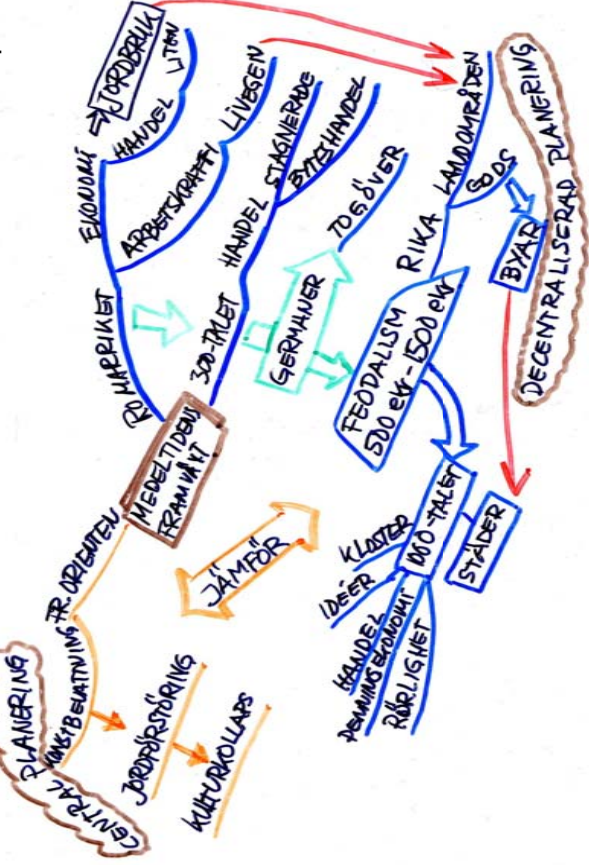 MEDELTIDENS
FRAMVÄXT
ROMARRIKET
EKONOMI
JORDBRUK
HANDEL
UTAN
ARBETSKRAFT
LIVEGEN
300-TALET
HANDEL
STAGNERADE
BYTESHANDEL
GERMANER
TOG ÖVER
FEODALISM
500 ekr-1500 ekr
RIKA
LANDOMRÅDEN
GODS
BYAR
DECENTRALISERAD PLANERING
1000-TALET
STÄDER
KLOSTER
IDÉER
HANDEL
PENNINGEKONOMI
RÖRLIGHET
JÄMFÖR
FR. ORIENTEN
KONSTBEVATTNING
CENTRAL
PLANERING
JORDFÖRSTÖRING
KULTURKOLLAPS